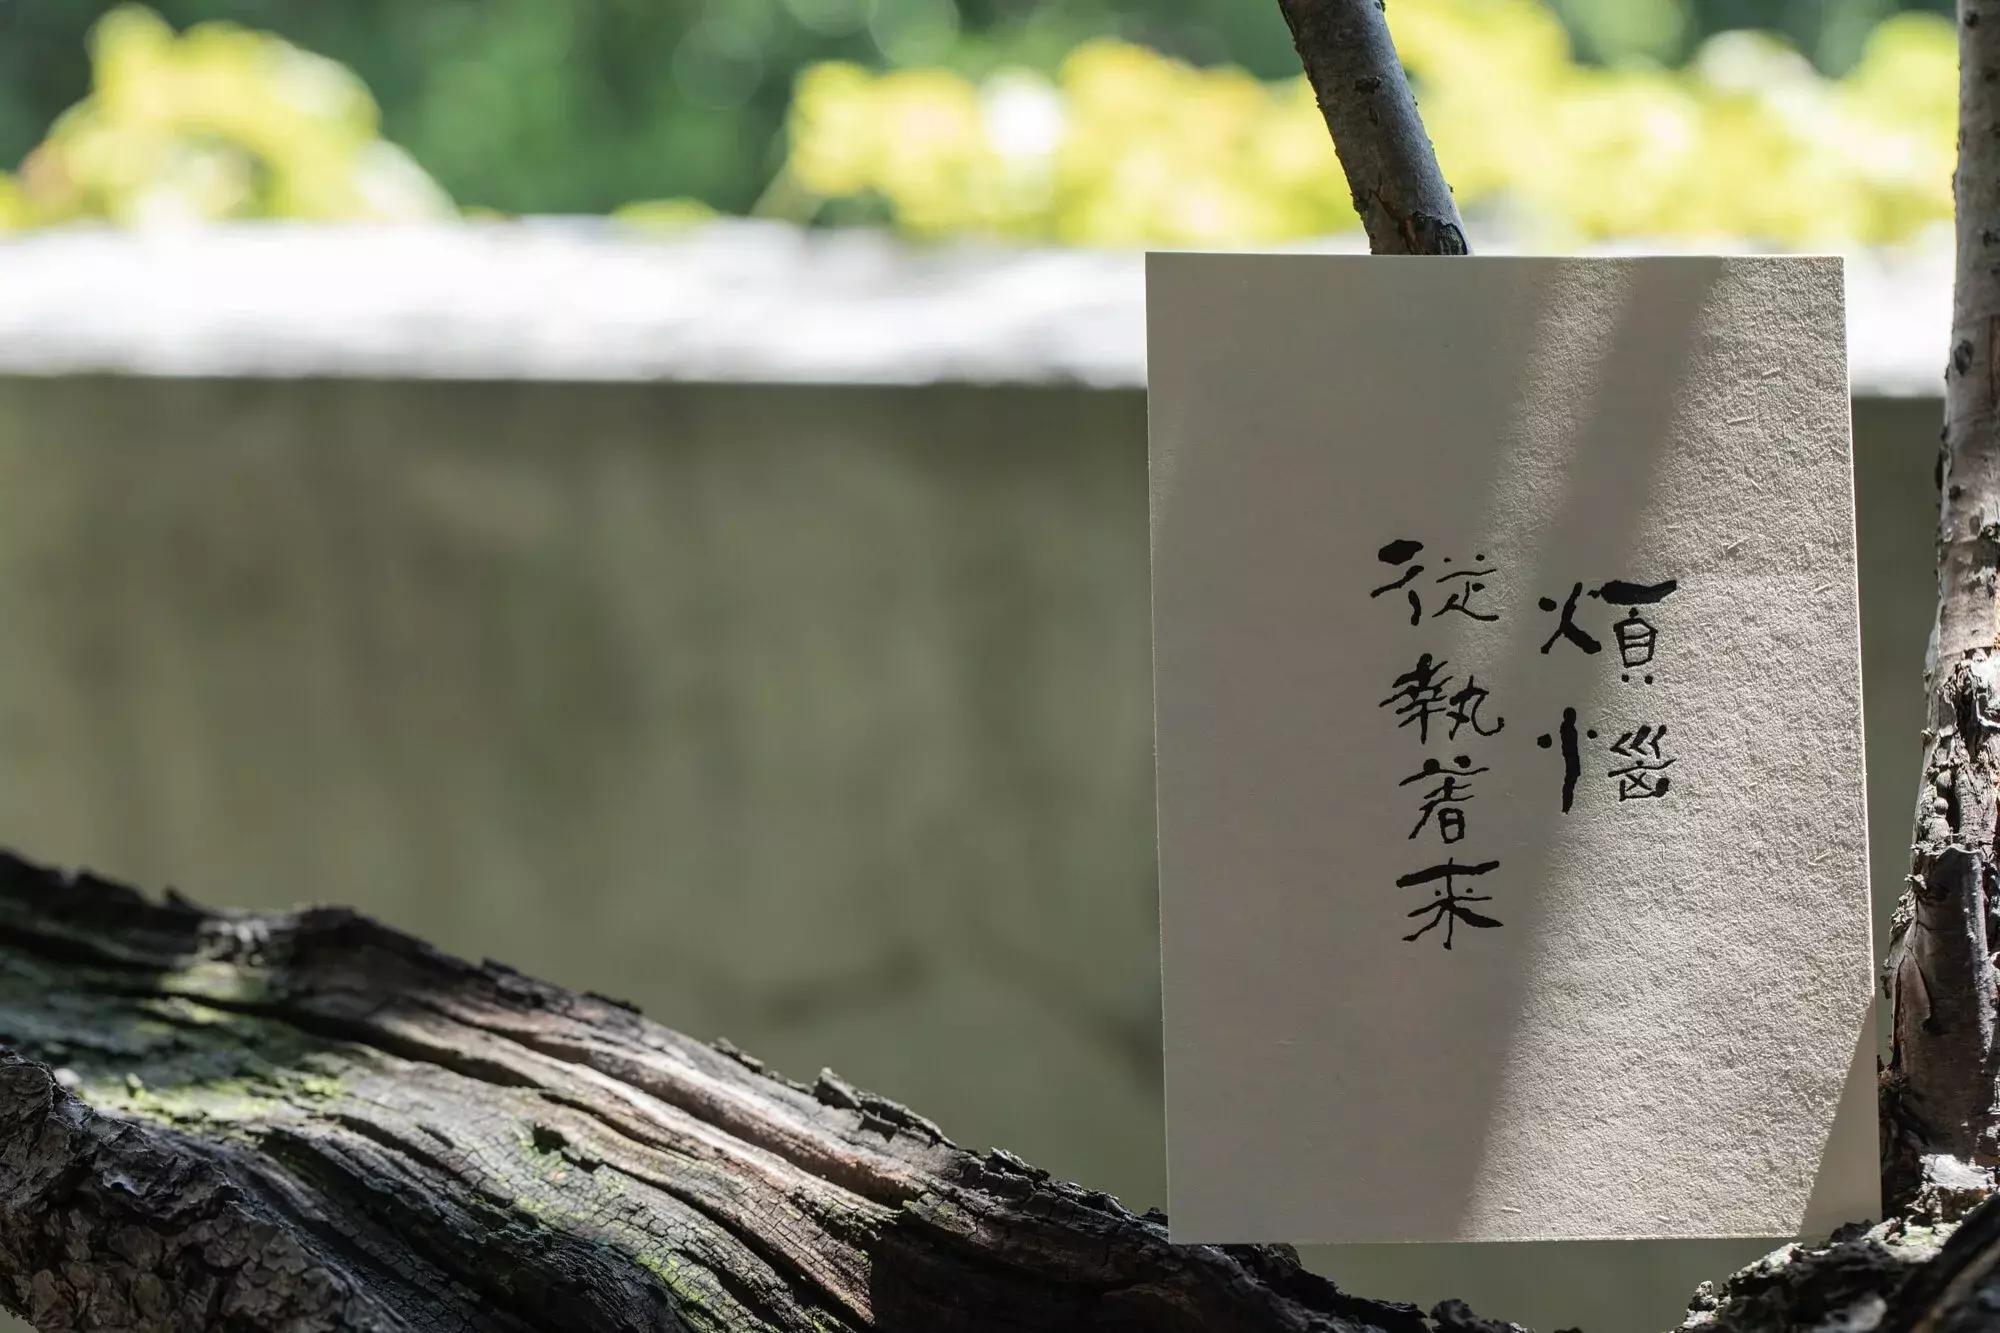 煩惱
從執着来